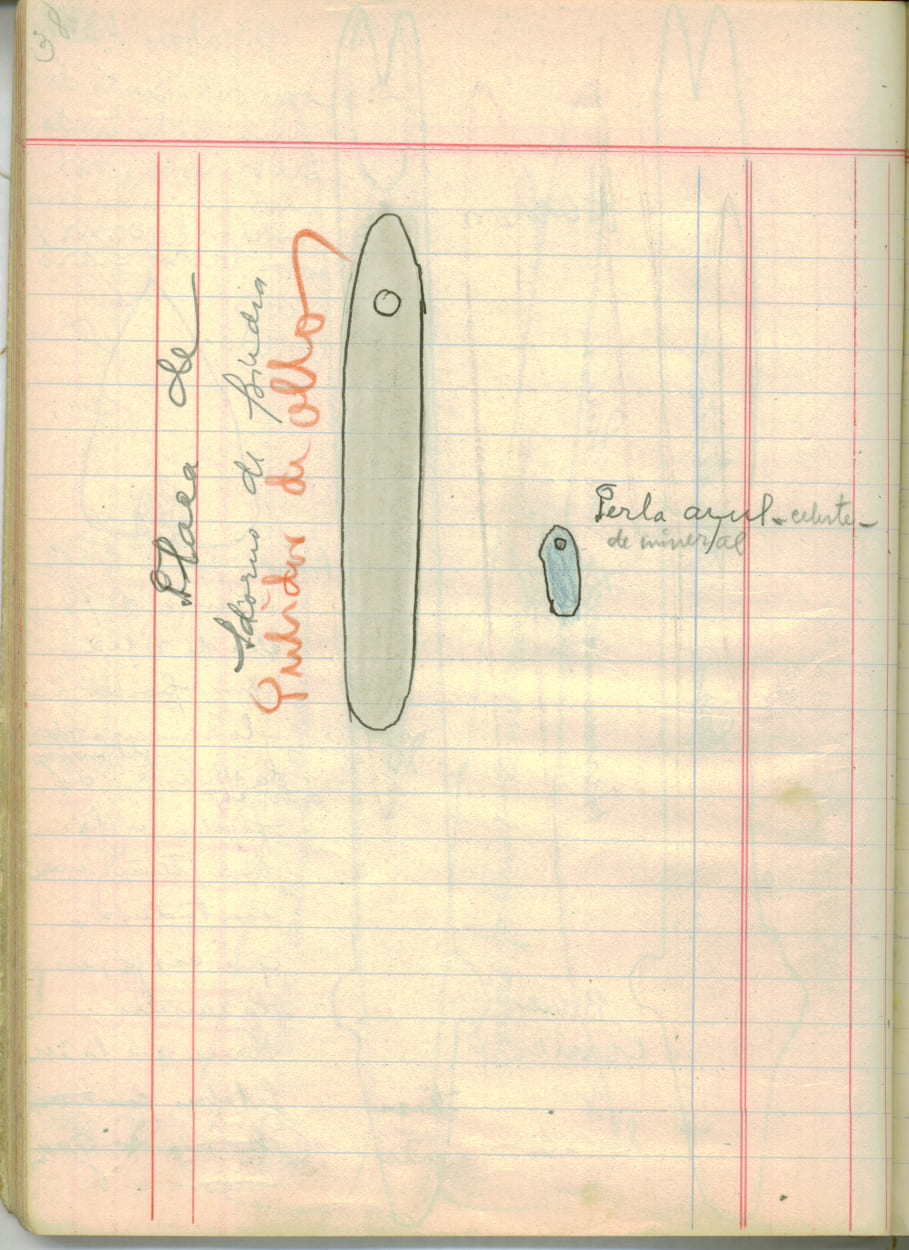 38
Placa de
Adorno de piedra
Pulidor de olla
Perla azul - celeste -
de mineral